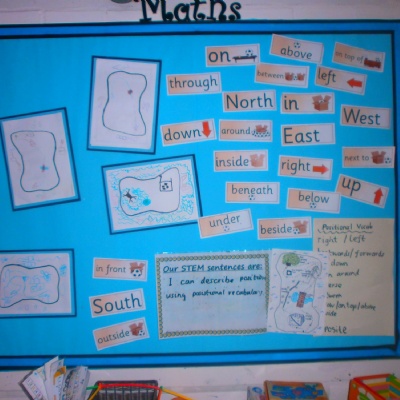 Maths
on
above
on top of
through
between
left
North
in
West
down
around
East
inside
right
next to
beneath
below
up
under
beside
in front
South
outside
Our STEM sentences are:
I can describe position
using positional vocabulary.
Positional Vocab
right / left
/ forwards
down
around